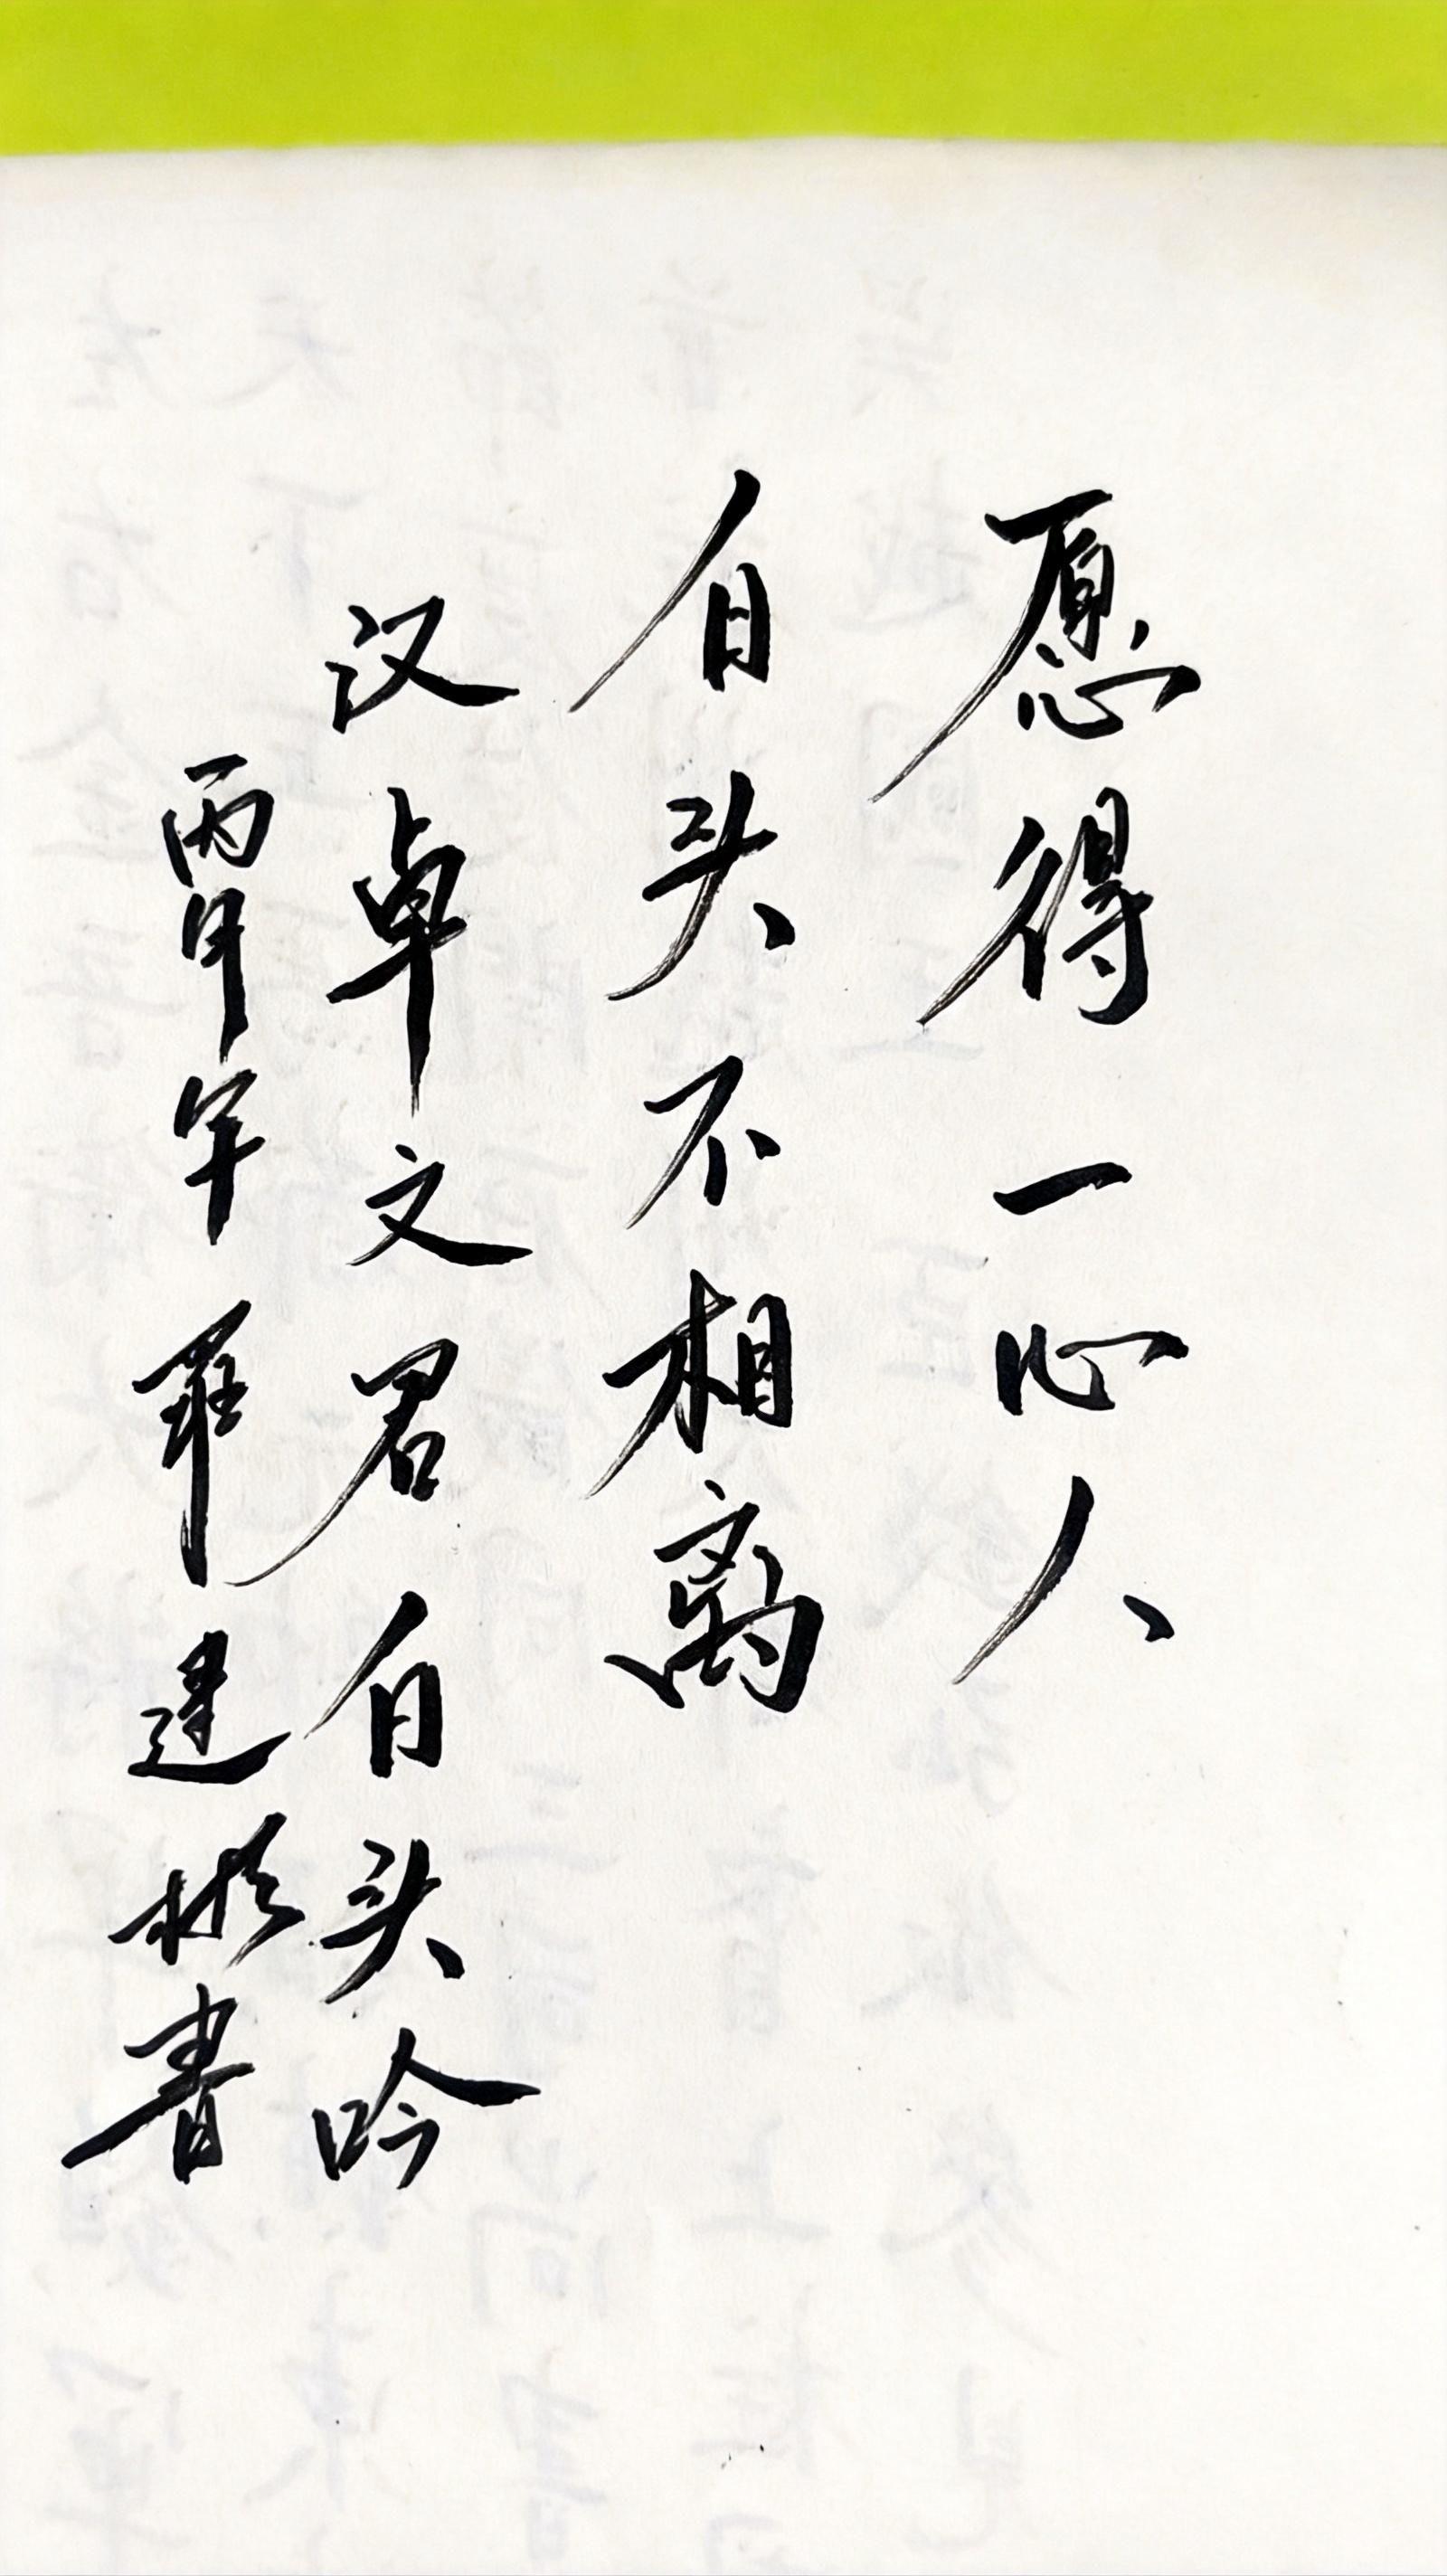 愿得一心人
白头不相离
汉卓文君白头吟
丙申年建書